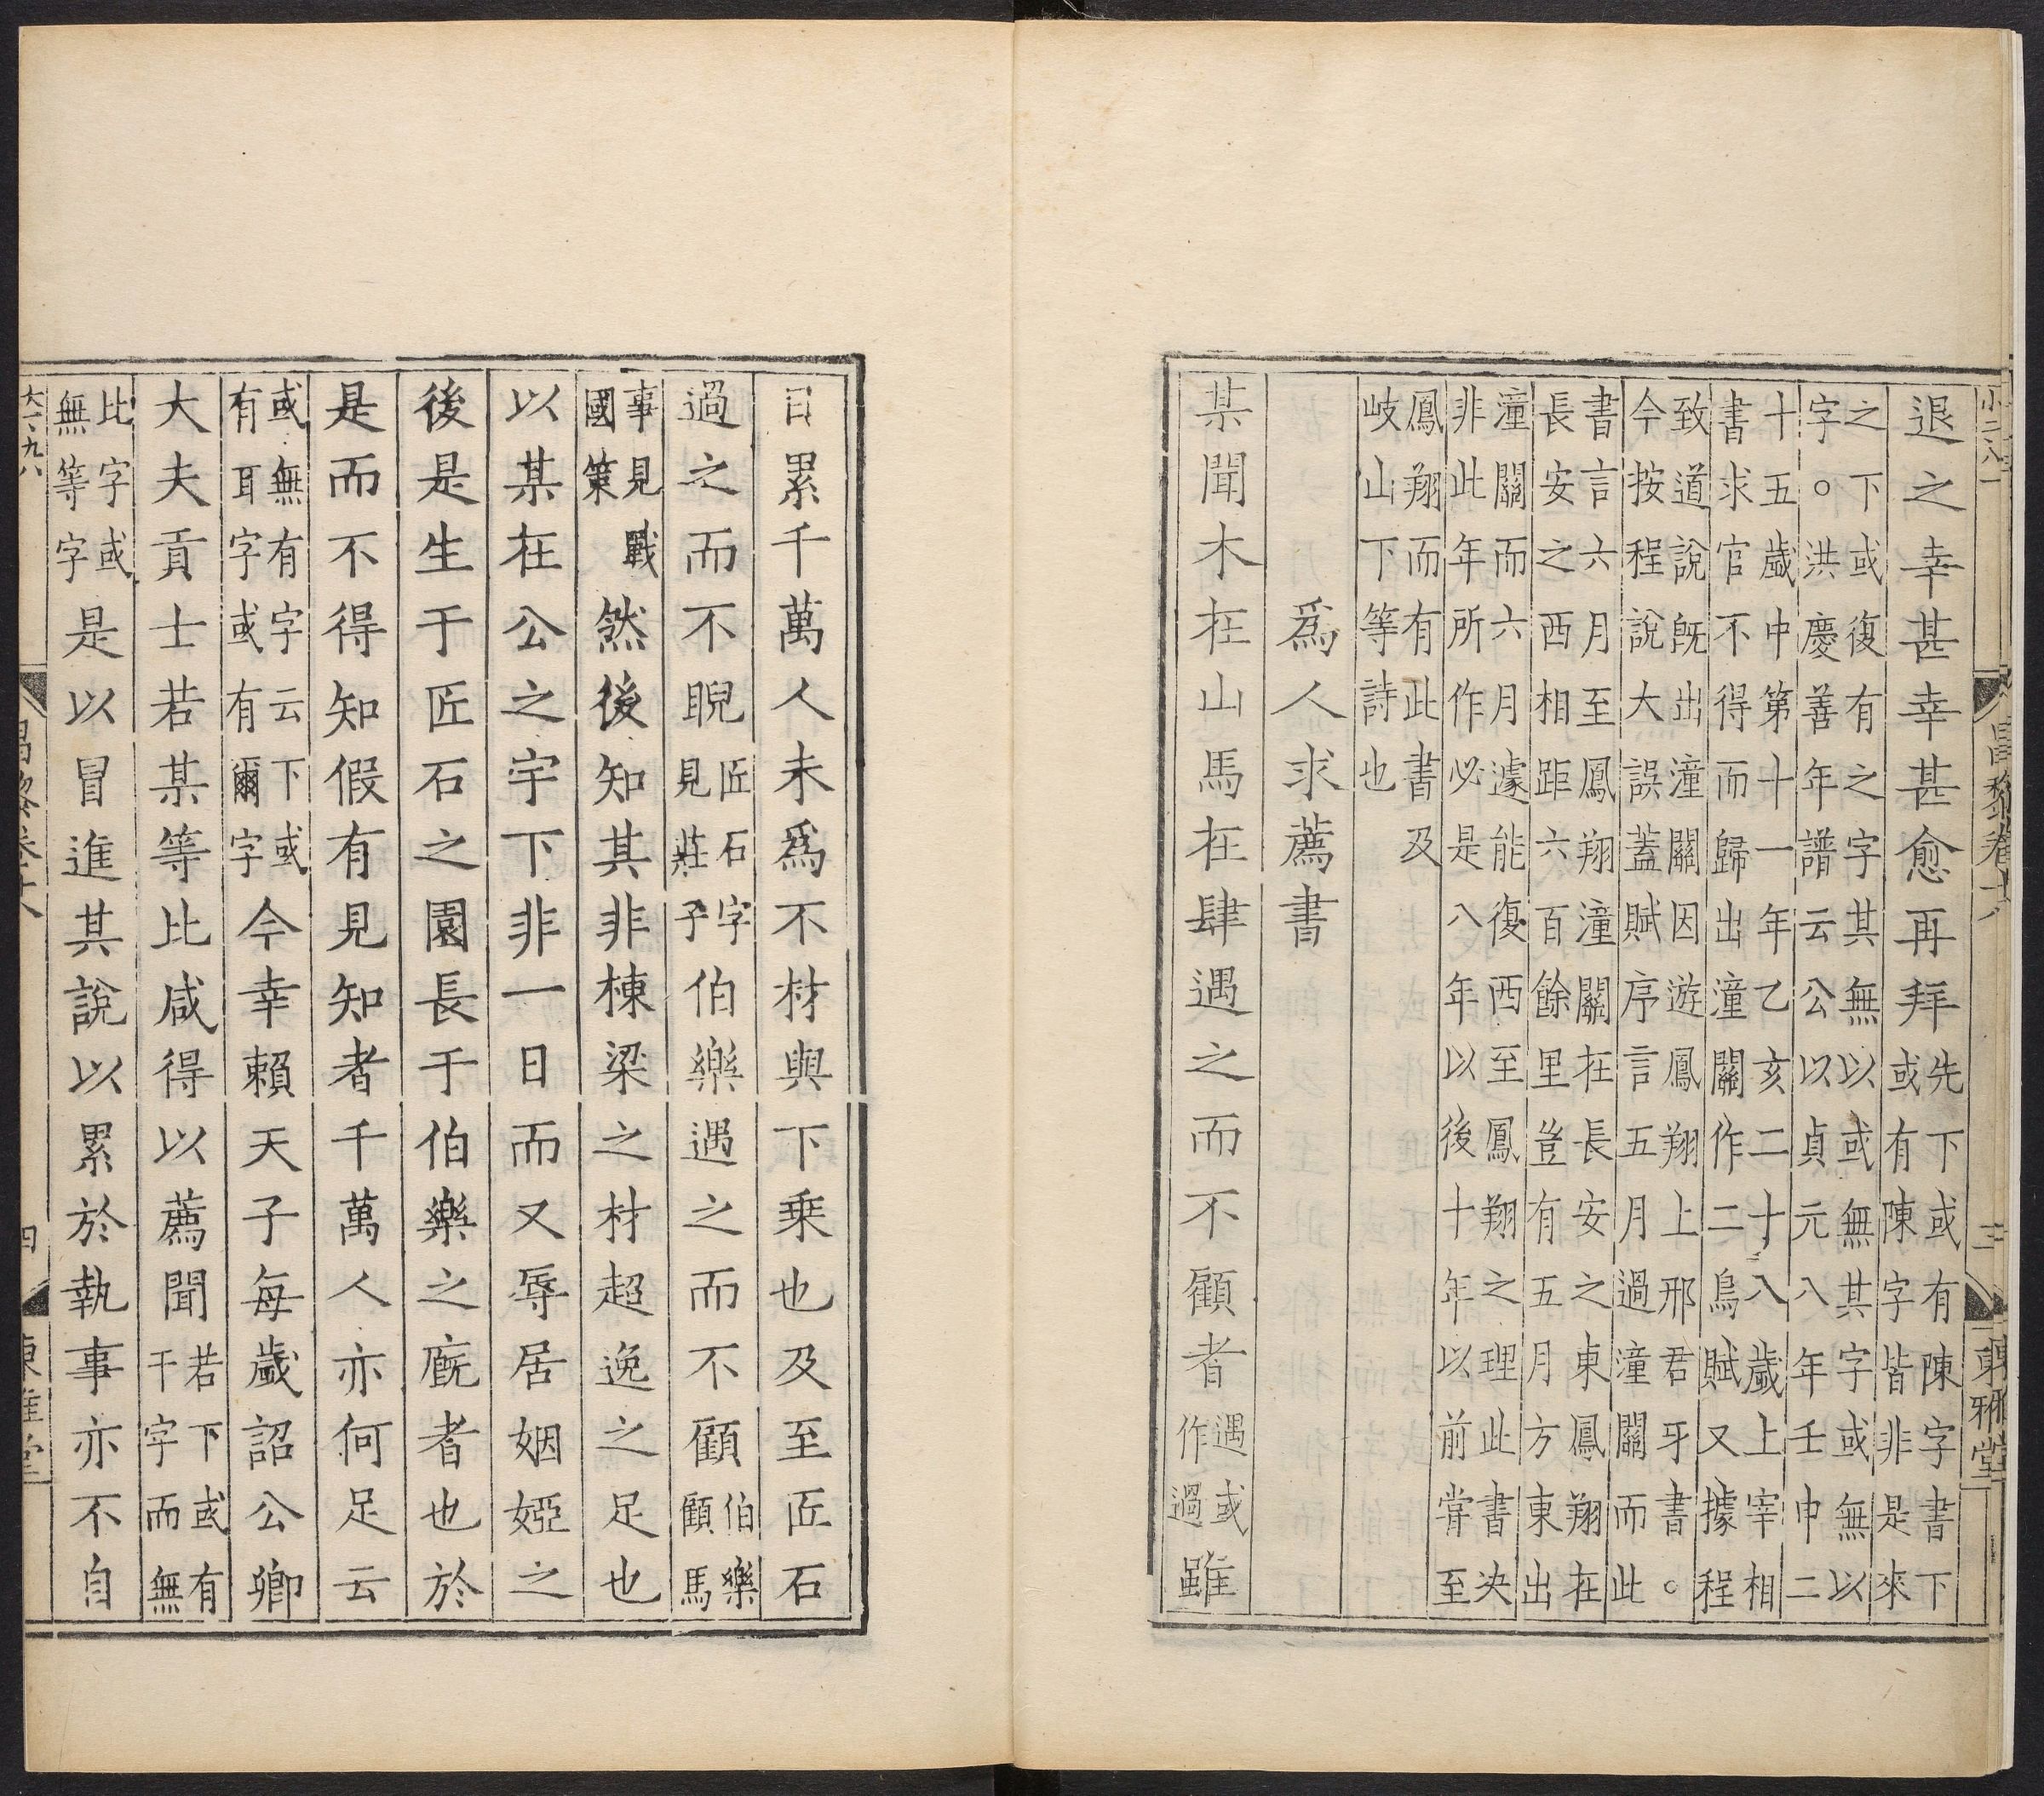 小二八一 昌黎卷十八 三 東雅堂
退之幸甚幸甚愈再拜先下或有陳字書下
或有陳字皆非是來
之下或復有之字其無以或無其字或無以
字○洪慶善年譜云公以貞元八年壬申二
十五歲中第十一年乙亥二十八歲上宰相
書求官不得而歸出潼關作二鳥賦又據程
致道說既出潼關因游鳳翔上邢君牙書○
今按程說大誤蓋賦序言五月過潼關而此
書言六月至鳳翔潼關在長安之東鳳翔在
長安之西相距六百餘里豈有五月方東出
潼關而六月遽能復西至鳳翔之理此書決
非此年所作必是八年以後十年以前嘗至
鳳翔而有此書及
岐山下等詩也
爲人求薦書
某聞木在山馬在肆遇之而不顧者遇或作過雖
日累千萬人未爲不材與下乗也及至匠石
過之而不睨匠石字見莊子伯樂遇之而不顧伯樂顧馬
事見戰國策然後知其非棟梁之材超逸之足也
以某在公之宇下非一日而又辱居姻婭之
後是生于匠石之園長于伯樂之廐者也於
是而不得知假有見知者千萬人亦何足云
或無有字云下或有耳字或有爾字今幸賴天子每歲詔公卿
大夫貢士若某等比咸得以薦聞若下或有干字而無
比字或無等字是以冒進其說以累於執事亦不自
大一九八 昌黎卷十八 四 東雅堂